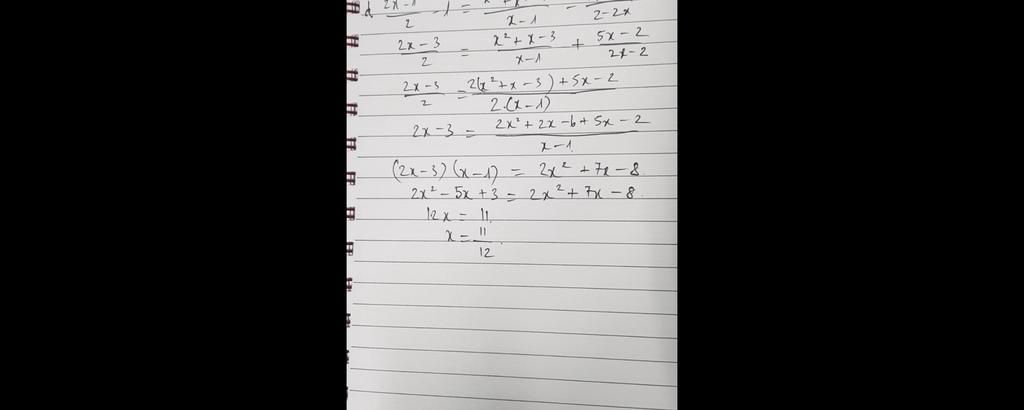 d 2x-1/2 - 1 = /x-1 - /2-2x
2x-3/2 = x²+x-3/x-1 + 5x-2/2x-2
2x-3/2 = 2(x²+x-3)+5x-2/2.(x-1)
2x-3 = 2x²+2x-6+5x-2/x-1
(2x-3)(x-1) = 2x²+7x-8
2x²-5x+3 = 2x²+7x-8
12x = 11
x = 11/12